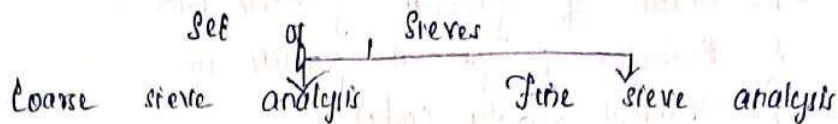 Set of Sieves
Coarse sieve analysis Fine sieve analysis